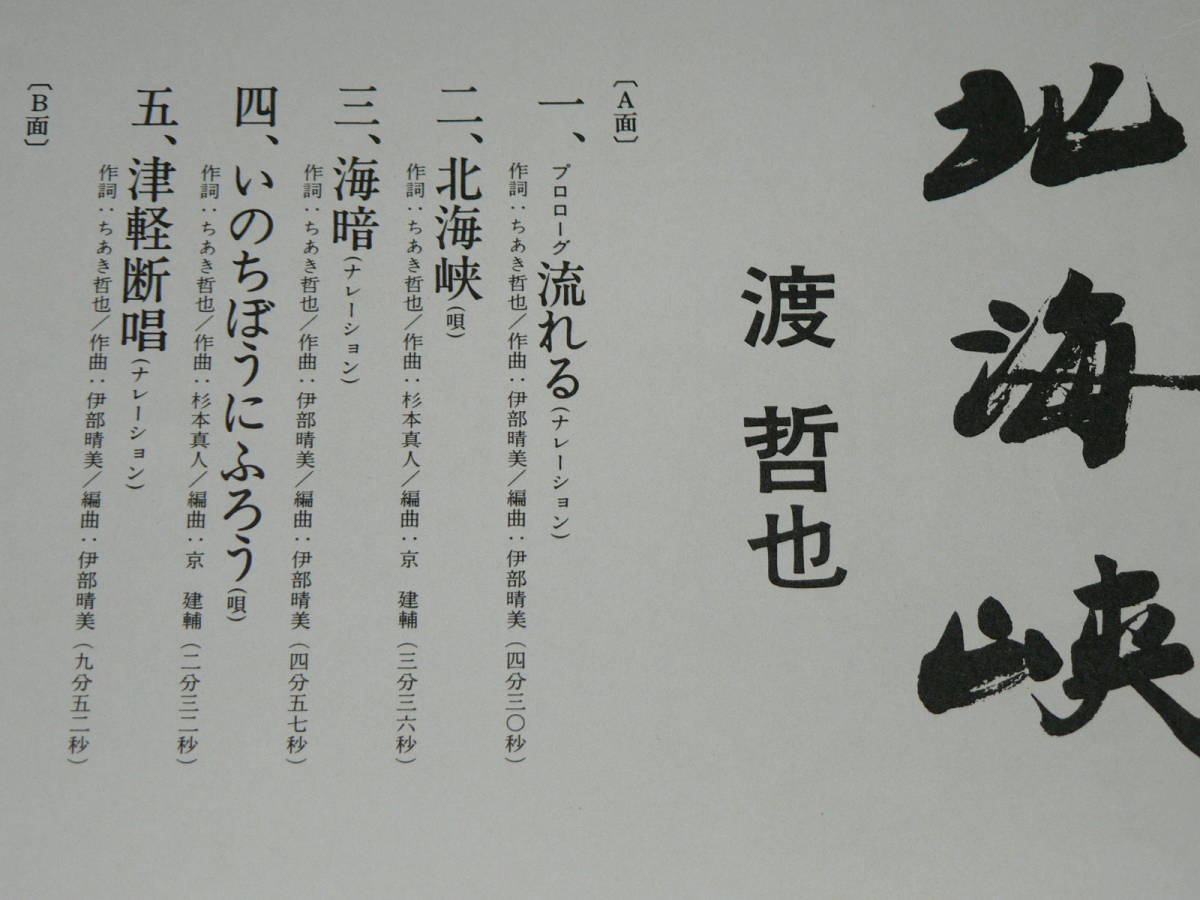 北海峡
渡哲也
〔A面〕
一、プロローグ 流れる（ナレーション）
作詞：ちあき哲也／作曲：伊部晴美／編曲：伊部晴美（四分三〇秒）
二、北海峡（唄）
作詞：ちあき哲也／作曲：杉本真人／編曲：京　建輔（三分三六秒）
三、海暗（ナレーション）
作詞：ちあき哲也／作曲：伊部晴美／編曲：伊部晴美（四分五七秒）
四、いのちぼうにふろう（唄）
作詞：ちあき哲也／作曲：杉本真人／編曲：京　建輔（二分三二秒）
五、津軽断唱（ナレーション）
作詞：ちあき哲也／作曲：伊部晴美／編曲：伊部晴美（九分五二秒）
〔B面〕